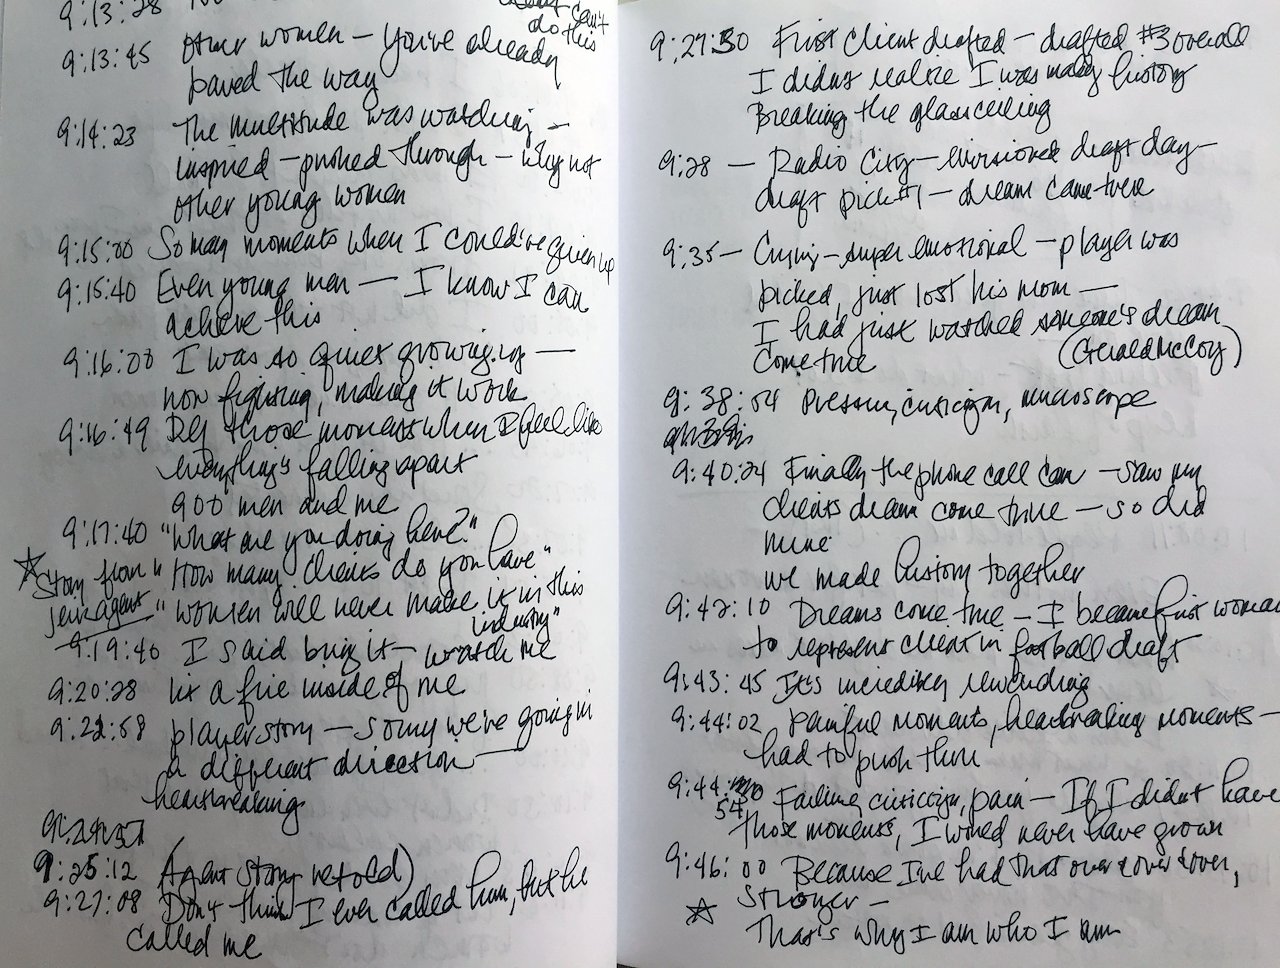 9:13:28
can't
do this
9:13:45 other women – you've already
paved the way
9:14:23 The multitude was watching –
inspired – pushed through – why not
other young women
9:15:00 So many moments when I could've given up
9:15:40 Even young men — I know I can
achieve this
9:16:00 I was so quiet growing up —
now fighting, making it work
9:16:49 those moments when I feel like
everything's falling apart
900 men and me
9:17:40 "What are you doing here?"
☆ Story from "How many clients do you have"
jerk agent "women will never make it in this
industry"
9:19:40 I said bring it – watch me
9:20:28 lit a fire inside of me
9:22:58 player story – sorry we're going in
a different direction —
heartbreaking
9:24:57
9:25:12 (Agent story retold)
9:27:08 Don't think I ever called him, but he
called me
9:27:30 First client drafted – drafted #3 overall
I didn't realize I was making history
Breaking the glass ceiling
9:28 – Radio City – envisioned draft day –
draft pick #1 – dream came true
9:35 – Crying – super emotional – player was
picked, just lost his mom —
I had just watched someone's dream
come true (Gerald McCoy)
9:38:04 Pressure, criticism, microscope
9:40:24 Finally the phone call can – saw my
clients dream come true – so did
mine
we made history together
9:42:10 Dreams come true – I became first woman
to represent client in football draft
9:43:45 It's incredibly rewarding
9:44:02 painful moments, heartbreaking moments –
had to push thru
9:44:54 Failing, criticism, pain – If I didn't have
those moments, I would never have grown
9:46:00 Because I've had that over & over & over,
stronger –
☆ That's why I am who I am